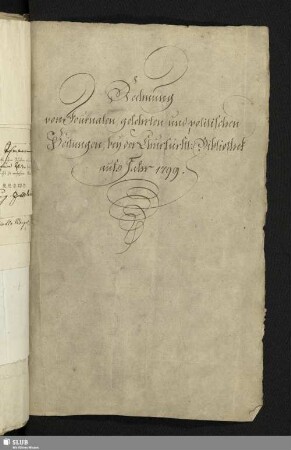 Rechnung
von Journalen gelehrten und politischen
Zeitungen, bey der Churfürstl: Bibliothek
aufs Jahr 1799.
SLUB
Wir führen Wissen.